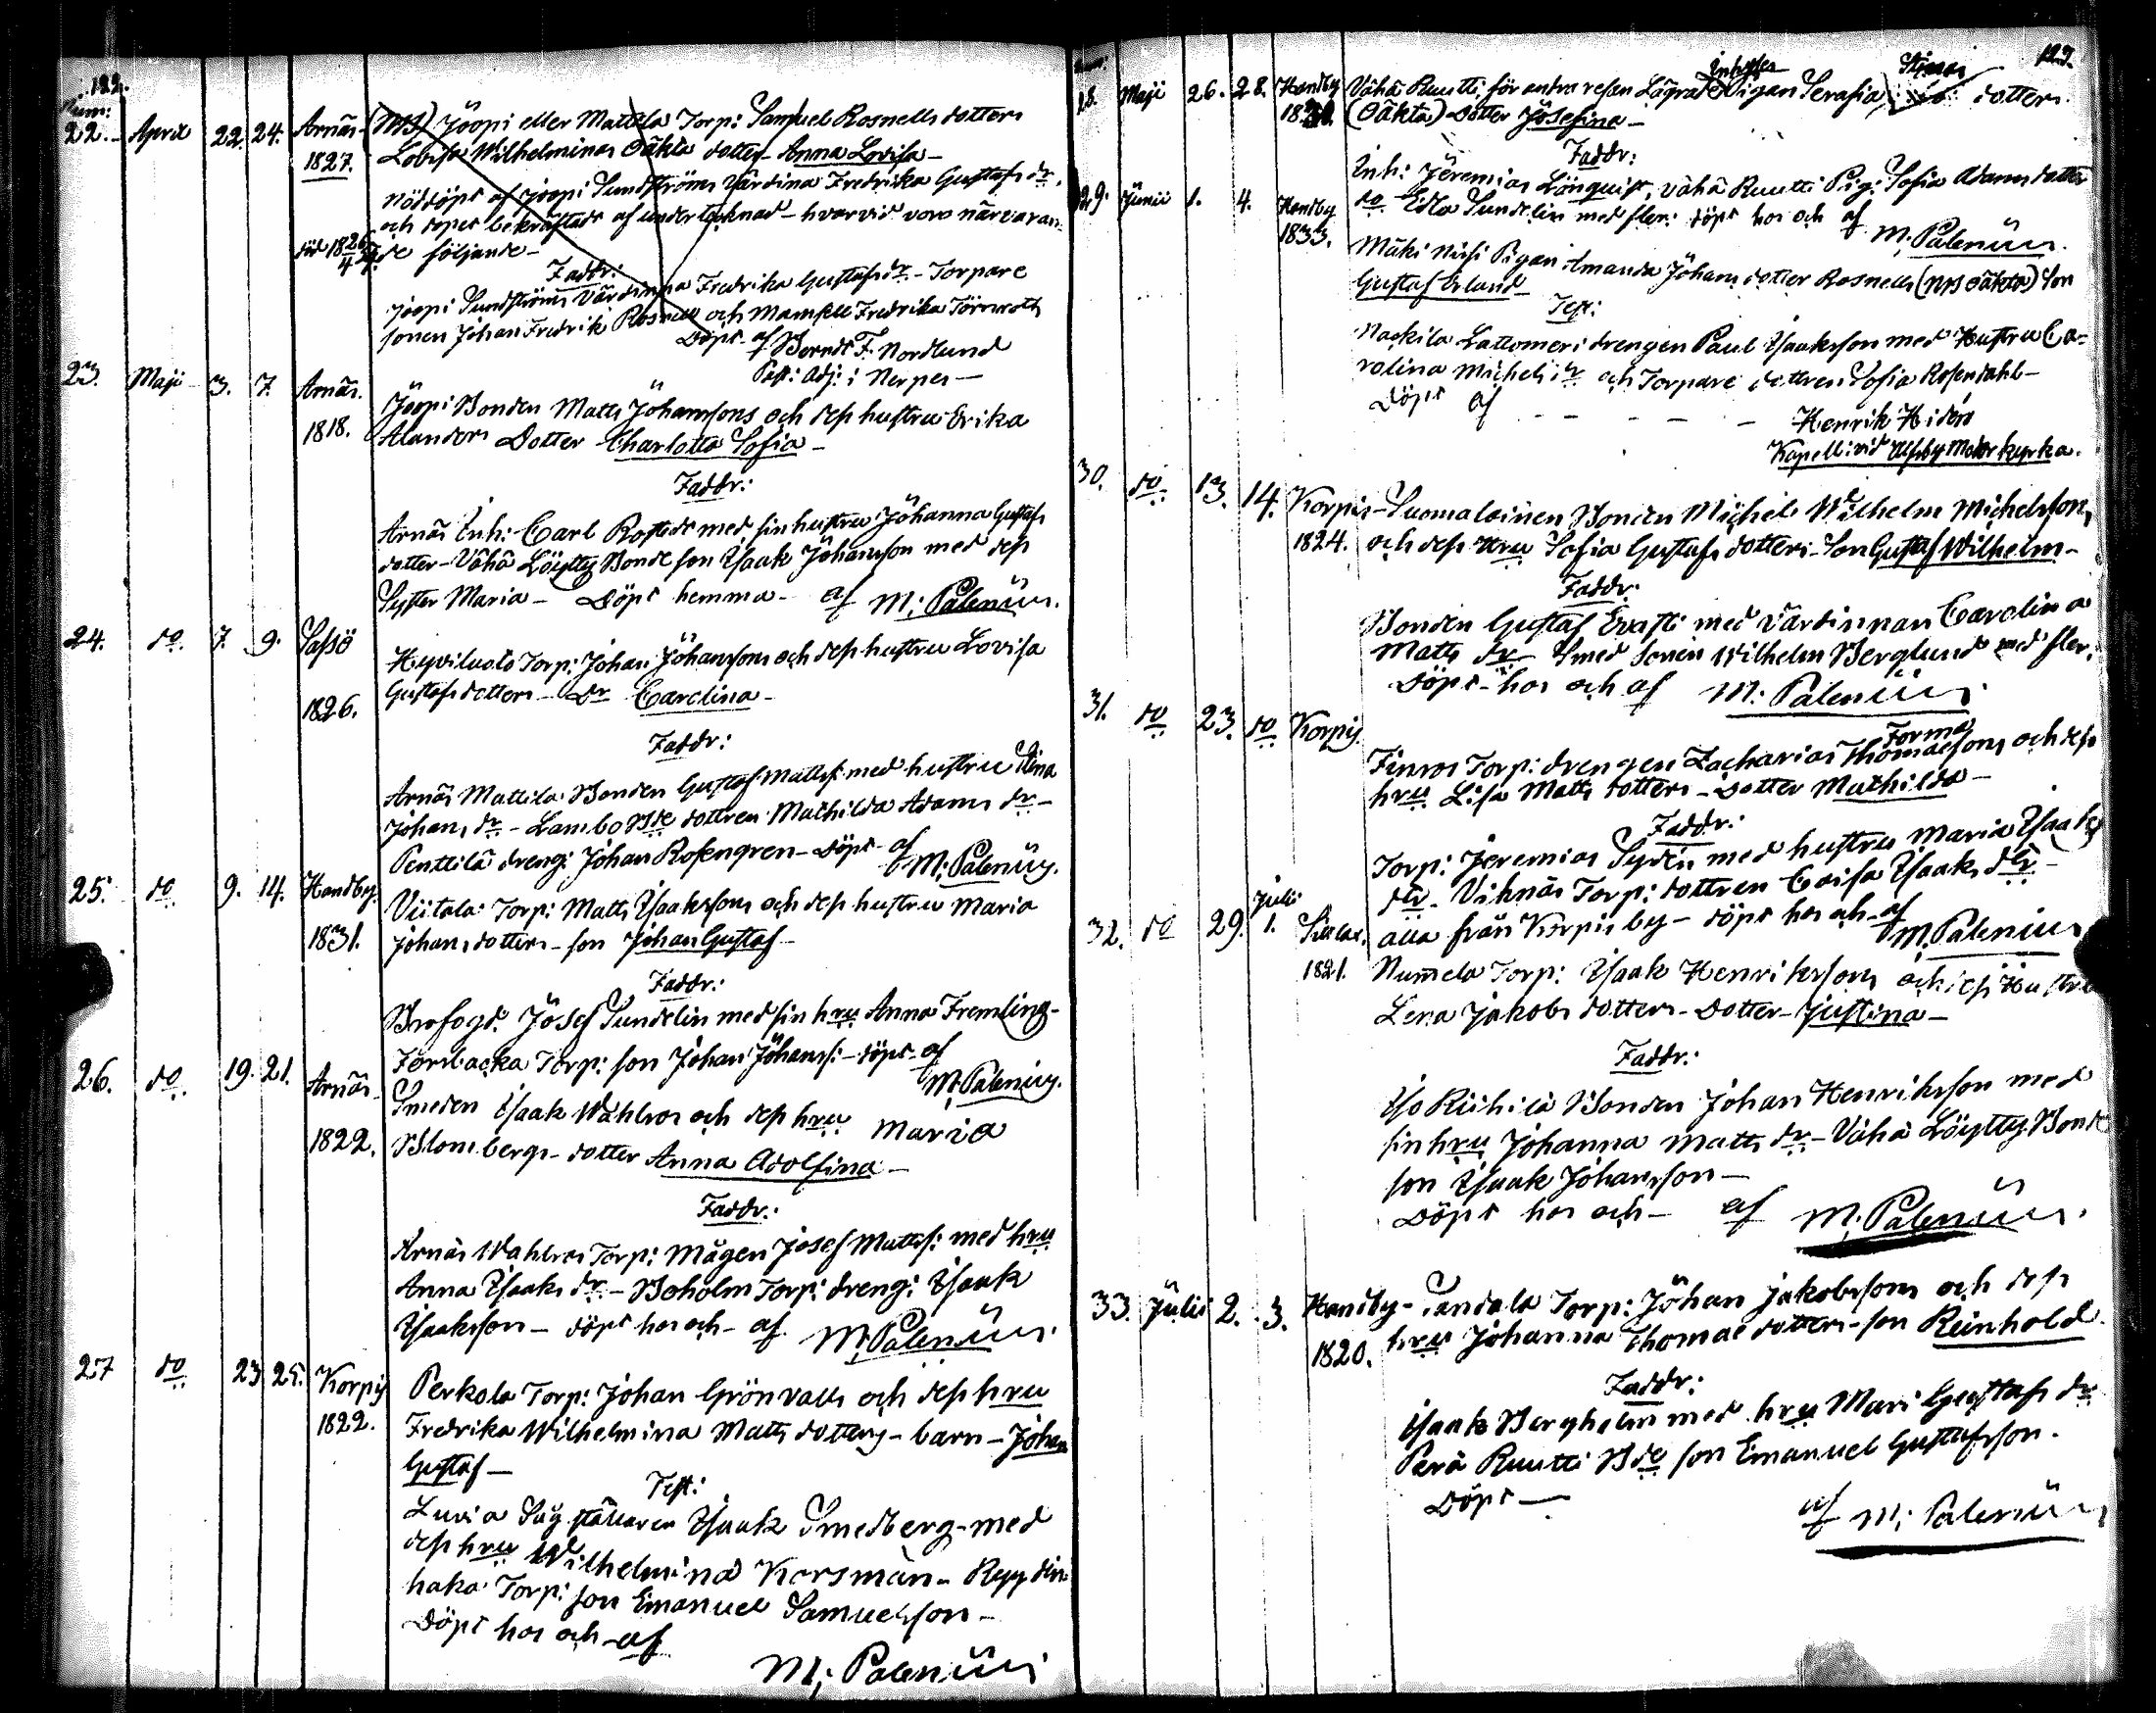 122.
Num:
22. April 22. 24. Arnäs (NB) Jöopi eller Mattila Torp: Samuel Rosnells dotters
1827. Lovisa Wilhelminas oäkta dotter Anna Lovisa
Nöddöpt af Jöopi Sundströms Värdina Fredrika Gustafs dr.
och dopet bekräftadt af undertecknad - hvarvid voro närvaran-
död 18 26/4 27. de följande -
Faddr:
Jöopi Sundströms Värdinna Fredrika Gustafs dr - Torpare
sonen Johan Fredrik Rosnell och Mamsell Fredrika Törnroth
Döpt af Berndt F. Nordlund
Past: Adj: i Nerpes
23. Maji 3. 7. Arnäs. Jöopi Bonden Matts Johanssons och dess hustru Erika
1818. Alanders Dotter Charlotta Sofia
Faddr:
Arnäs Inh: Carl Rostedt med sin hustru Johanna Gustafs
dotter - Vähä Löytty Bonde son Isaak Johansson med dess
Syster Maria - Döpt hemma - af M: Palenius.
24. do. 7. 9. Sassö Hyviluoto Torp: Johan Johanssons och dess hustru Lovisa
1826. Gustafsdotters - Dr Carolina -
Faddr:
Arnäs Mattila Bonden Gustaf Mattss: med hustru Stina
Johans dr - Lambo Bde dottren Mathilda Adams dr -
Penttilä dreng: Johan Rosengren - Döpt - af M: Palenius.
25. do 9. 14. Handby. Viitala Torp: Matts Isaakssons och dess hustru Maria
1831. Johansdotters - son Johan Gustaf -
Faddr:
Brofogd. Josef Sundelin med sin hru Anna Fremling -
Torrbacka Torp: son Johan Johanss: - döpt af M: Palenius.
26. do. 19. 21. Arnäs - Smeden Isaak Wahlros och dess hru Maria
1822. Blombergs - dotter Anna Adolfina -
Faddr:
Arnäs Wahlros Torp: Mågen Josef Mattss: med hru
Anna Isaaks dr - Boholm Torp: dreng: Isaak
Isaaksson - döpt hos och - af M: Palenius.
27 do 23 25. Korpis Perkola Torp: Johan Grönvalls och dess hru
1822. Fredrika Wilhelmina Matts dotters - barn - Johan
Gustaf -
Test:
Luvia Såg ställaren Isaak Smedberg - med
dess hru Wilhelmina Korsman -
haka Torp: son Emanuel Samuelsson -
Döpt hos och af
M: Palenius
123.
28. Maji 26. 28. Handby Vähä Ruutti, för andra resan Lägrade Pigan Serafia dotters
(oäkta) Dotter Josefina -
Faddr:
Inh: Jeremias Lönquist, Vähä Ruutti Pig: Sofia Adams dotter
do Edla Sundelin med fler: döpt hos och af M: Palenius.
29. Junii 1. 4. Handby Mäki Nisi Pigan Amanda Johans dotter Rosnells (NB oäkta) Son
1833. Gustaf Erland
Test:
Nackila Lattomeri drengen Paul Isaaksson med Hustru Ca-
rolina Michels dr och Torpare dottren Sofia Rosendahl -
Döpt af - - - - Henrik Hidén
Kapell: vid Ulfsby Moder kyrka.
30. do. 13. 14. Korpis - Suomalainen Bonden Michel Wilhelm Michelsson,
1824. och dess Hru Sofia Gustafs dotters - Son Gustaf Wilhelm -
Faddr:
Bonden Gustaf Evasti med Värdinnan Carolina
Matts dr - Smed sonen Wilhelm Berglund med fler.
Döpt - hos och af M: Palenius
31. do 23. do Korpis. Forma
Finros Torp: drengen Zacharias Thomaesons och dess
hru Lisa Matts dotters - Dotter Mathilda -
Faddr:
Torp: Jeremias Sydén med hustru Maria Isaaks
dtr - Viknäs Torp: dottren Caisa Isaaks dtr -
alla från Korpis by - döpt hos och af M: Palenius
32. do 29. Julii 1. Nummela Torp: Isaak Henrikssons och dess Hustru
1821. Lena Jakobs dotters - Dotter - Justina -
Faddr:
Iso Riihilä Bonden Johan Henriksson med
sin hru Johanna Matts dr - Vähä Löytty Bonde
son Isaak Johansson -
Döpt hos och - af M: Palenius.
33. Julii 2. 3. Handby - Sandala Torp: Johan Jakobssons och dess
1820. hru Johanna Thomae dotters - son Reinhold
Faddr:
Isaak Bergholm med hru Mari Gustafs dr
Perä Ruutti Bde son Emanuel Gustafsson.
Döpt -
af M: Palenius